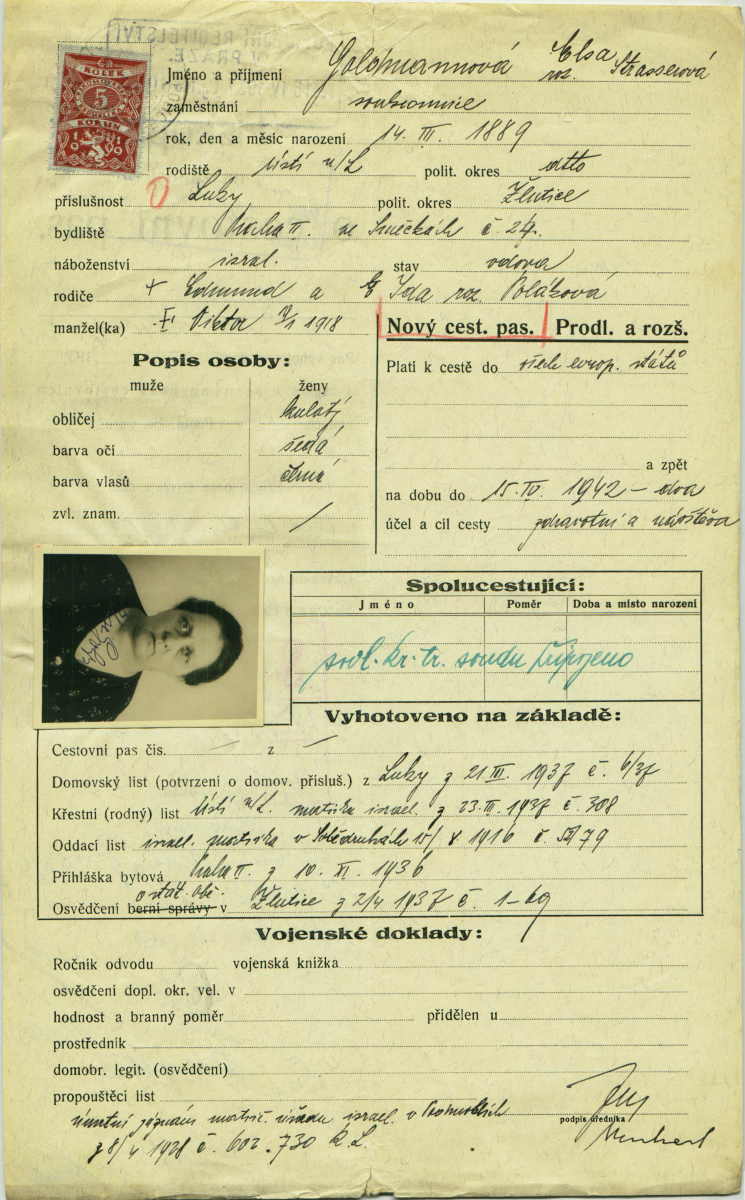 KOLEK
5
KORUN
1919
Jméno a příjmení Goldmannová Elsa
roz. Strasserová
zaměstnání soukromnice
rok, den a měsíc narození 14. III. 1889
rodiště Ústí n/L polit. okres dtto
příslušnost Luky polit. okres Žlutice
bydliště Praha II. ve Smečkách č. 24.
náboženství israel. stav vdova
rodiče + Edmund a Ida roz. Poláková
manžel(ka) Viktor 1918
Nový cest. pas. Prodl. a rozš.
Popis osoby:
muže ženy
obličej kulatý
barva očí šedá
barva vlasů černá
zvl. znam. /
Platí k cestě do všech evrop. států
a zpět
na dobu do 15. IV. 1942 – dva
účel a cíl cesty zdravotní a návštěva
Spolucestující:
Jméno Poměr Doba a místo narození
kr. tr. soudu připojeno
Vyhotoveno na základě:
Cestovní pas čis. — z —
Domovský list (potvrzení o domov. přísluš.) z Luky z 21 III. 1937 č. 6/37
Křestní (rodný) list Ústí n/L. matrika israel. z 23. III. 1937 č. 308
Oddací list israel. matrika v 1916 č. 79
Přihláška bytová Praha II. z 10. XI. 1936
o stát. obč.
Osvědčení berní správy v Žlutice z 2/4 1937 č. 1-69
Vojenské doklady:
Ročník odvodu vojenská knížka
osvědčení dopl. okr. vel. v
hodnost a branný poměr přidělen u
prostředník
domobr. legit. (osvědčení)
propouštěcí list
úmrtní matrič. úřadu israel. v
z 8/4 1928 č. 602.730
podpis úředníka